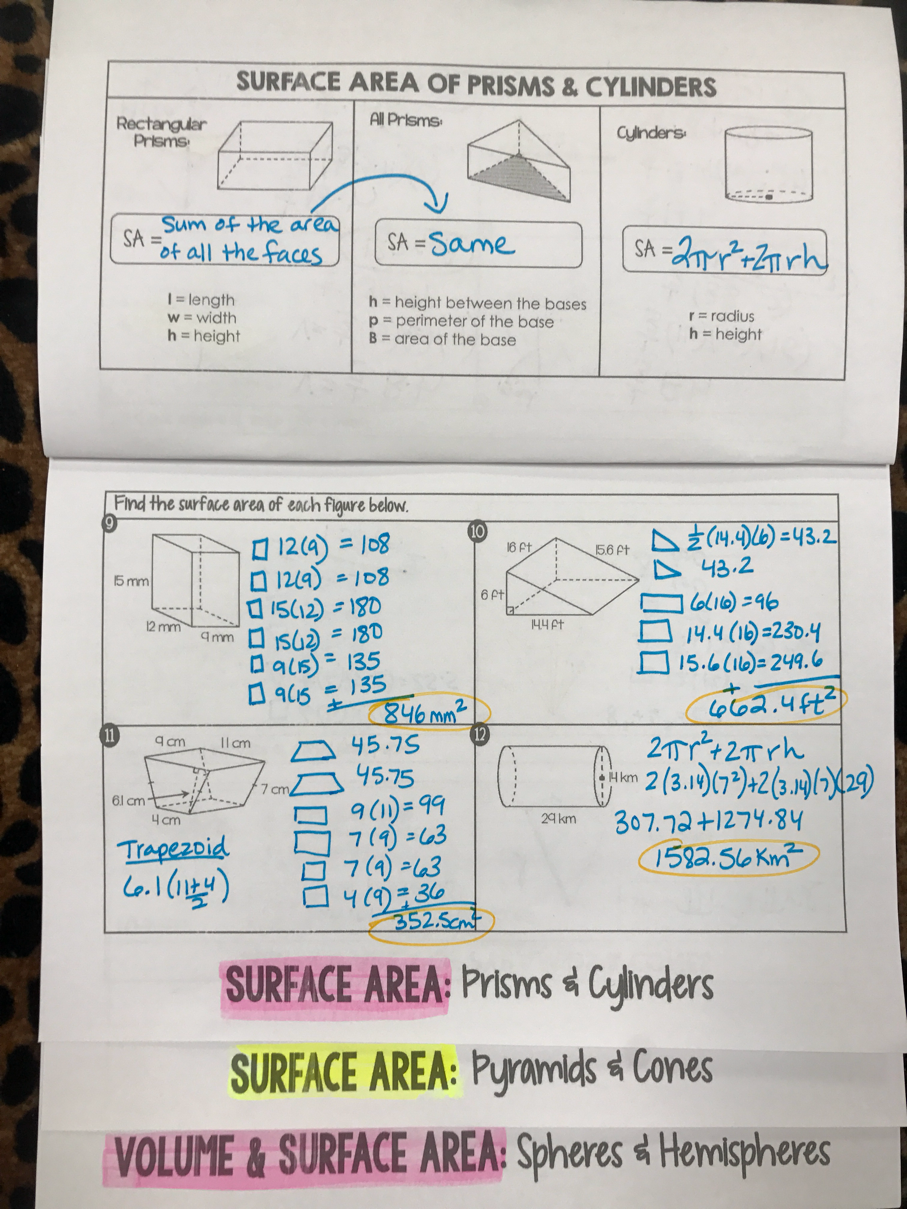 SURFACE AREA OF PRISMS & CYLINDERS
Rectangular
Prisms:
SA = Sum of the area
of all the faces
l = length
w = width
h = height
All Prisms:
SA = Same
h = height between the bases
p = perimeter of the base
B = area of the base
Cylinders:
SA = 2πr²+2πrh
r = radius
h = height
Find the surface area of each figure below.
9
15 mm
12 mm
9 mm
12(9) = 108
12(9) = 108
15(12) = 180
15(12) = 180
9(15) = 135
9(15 = 135
+
846 mm²
10
16 ft
15.6 ft
6 ft
14.4 ft
½(14.4)(6) = 43.2
43.2
6(16) = 96
14.4(16) = 230.4
15.6(16) = 249.6
+
662.4 ft²
11
9 cm
11 cm
6.1 cm
7 cm
4 cm
Trapezoid
6.1(11+4/2)
45.75
45.75
9(11) = 99
7(9) = 63
7(9) = 63
4(9) = 36
+
352.5cm²
12
14 km
29 km
2πr²+2πrh
2(3.14)(7²)+2(3.14)(7)(29)
307.72+1274.84
1582.56 Km²
SURFACE AREA: Prisms & Cylinders
SURFACE AREA: Pyramids & Cones
VOLUME & SURFACE AREA: Spheres & Hemispheres